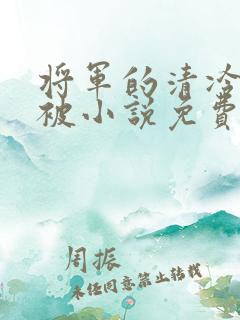 将军的清冷
被小说免费
周振
未经同意禁止转载